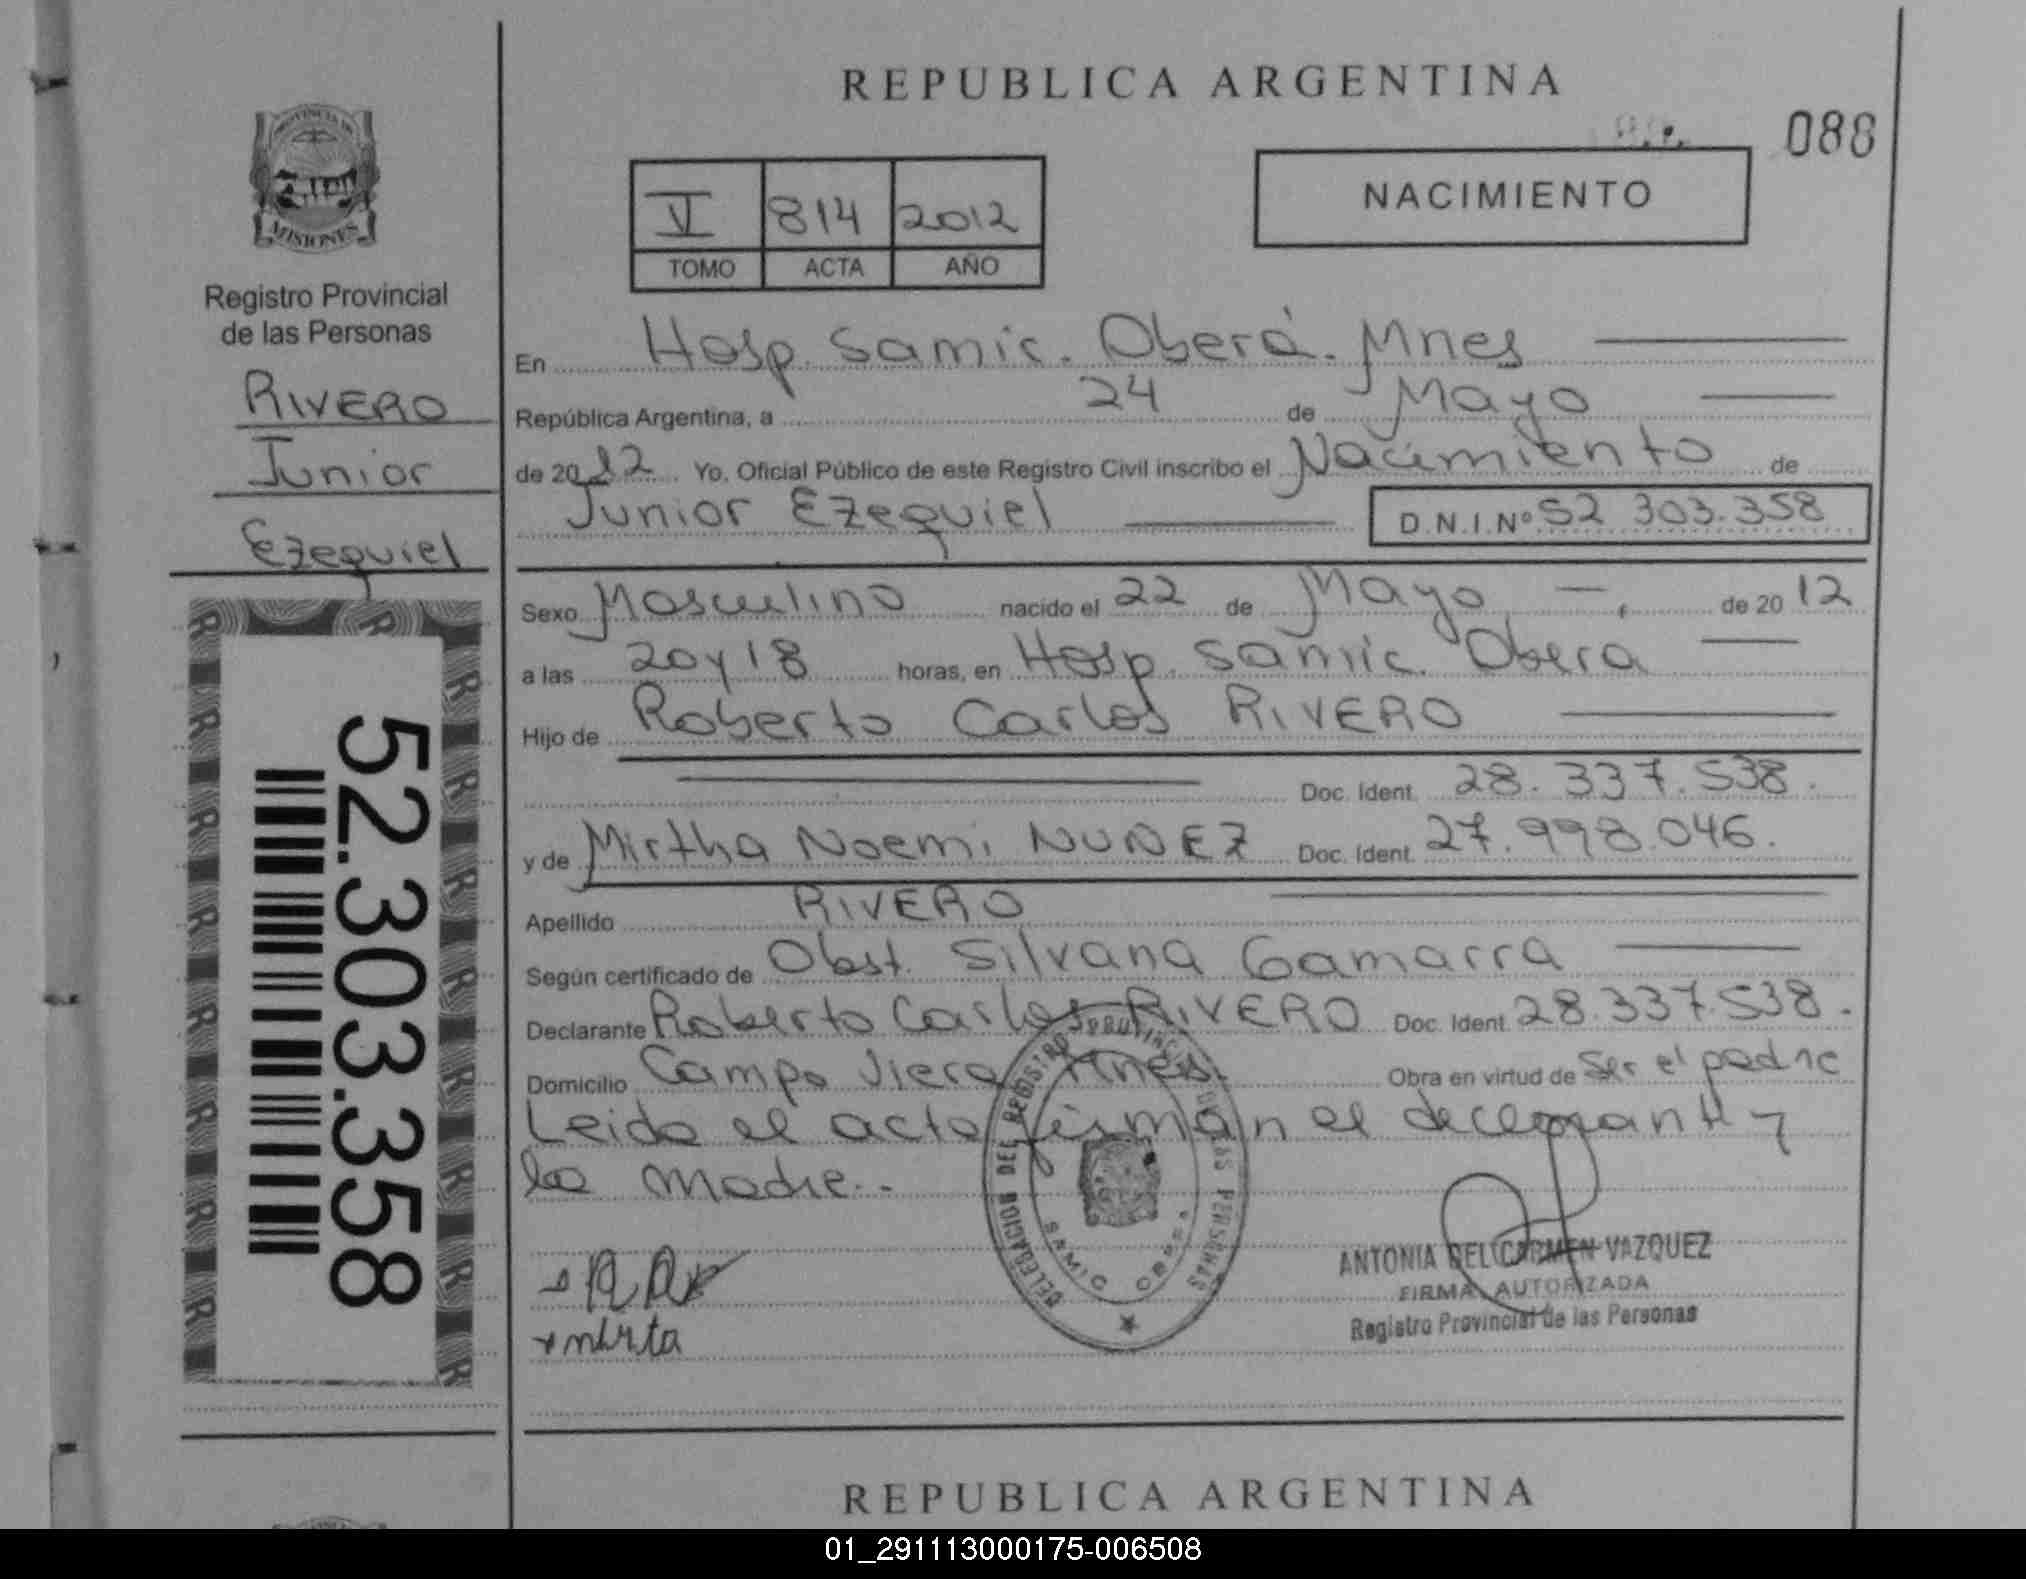 REPUBLICA ARGENTINA
088
NACIMIENTO
V 814 2012
TOMO ACTA AÑO
PROVINCIA DE
MISIONES
Registro Provincial
de las Personas
RIVERO
Junior
Ezequiel
52.303.358
En Hosp. Samic. Oberá. Mnes
República Argentina, a 24 de Mayo
de 2012 Yo, Oficial Público de este Registro Civil inscribo el Nacimiento de
Junior Ezequiel D.N.I.Nº 52 303.358
Sexo Masculino nacido el 22 de Mayo de 2012
a las 20 y 18 horas, en Hosp. Samic. Obera
Hijo de Roberto Carlos RIVERO
Doc. Ident. 28.337.538.
y de Mirtha Noemi NUÑEZ Doc. Ident. 27.998.046.
Apellido RIVERO
Según certificado de Obst. Silvana Gamarra
Declarante Roberto Carlos RIVERO Doc. Ident. 28.337.538.
Domicilio Campo Viera Mnes. Obra en virtud de Ser el padre
Leida el acta firman el declarante y
la madre.
DELEGACION DEL REGISTRO PROVINCIAL DE LAS PERSONAS
SAMIC OBERA
ANTONIA DEL CARMEN VAZQUEZ
FIRMA AUTORIZADA
Registro Provincial de las Personas
REPUBLICA ARGENTINA
01_291113000175-006508